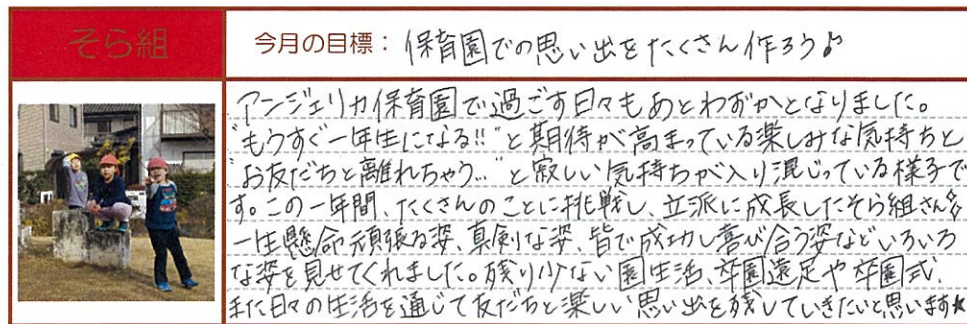 そら組
今月の目標：保育園での思い出をたくさん作ろう♪
アンジェリカ保育園で過ごす日々もあとわずかとなりました。
"もうすぐ一年生になる!!"と期待が高まっている楽しみな気持ちと
"お友だちと離れちゃう…"と寂しい気持ちが入り混じっている様子で
す。この一年間、たくさんのことに挑戦し、立派に成長したそら組さん☆
一生懸命頑張る姿、真剣な姿、皆で成功し喜び合う姿などいろいろ
な姿を見せてくれました。残り少ない園生活、卒園遠足や卒園式、
また日々の生活を通じて友だちと楽しい思い出を残していきたいと思います★